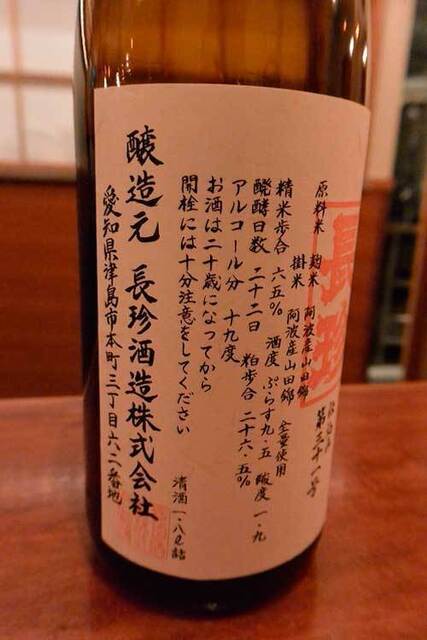 長珍
仕込み 第三十一号
原料米 麹米 阿波産山田錦
掛米 阿波産山田錦 全量使用
精米歩合 六五% 酒度 ぷらす九・五 酸度 一・九
醗酵日数 二十二日 粕歩合 二十六・五%
アルコール分 十九度
お酒は二十歳になってから
開栓には十分注意をしてください
清酒 一・八ℓ詰
醸造元 長珍酒造株式会社
愛知県津島市本町三丁目六二番地